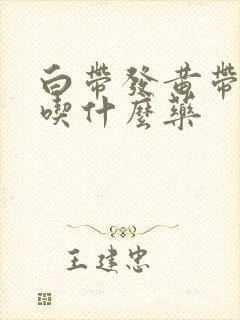 白帶發黄帶
喫什麼藥
王建忠